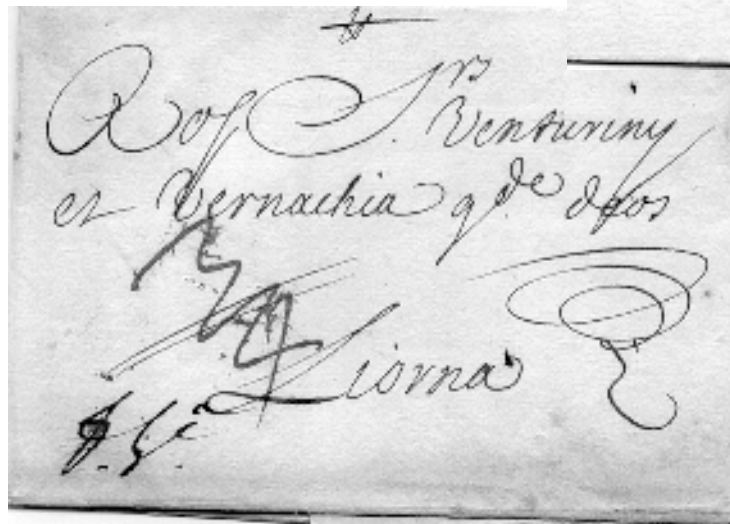 A os S.rs Venturiny
et Vernachia q. de D. gos
Liorna